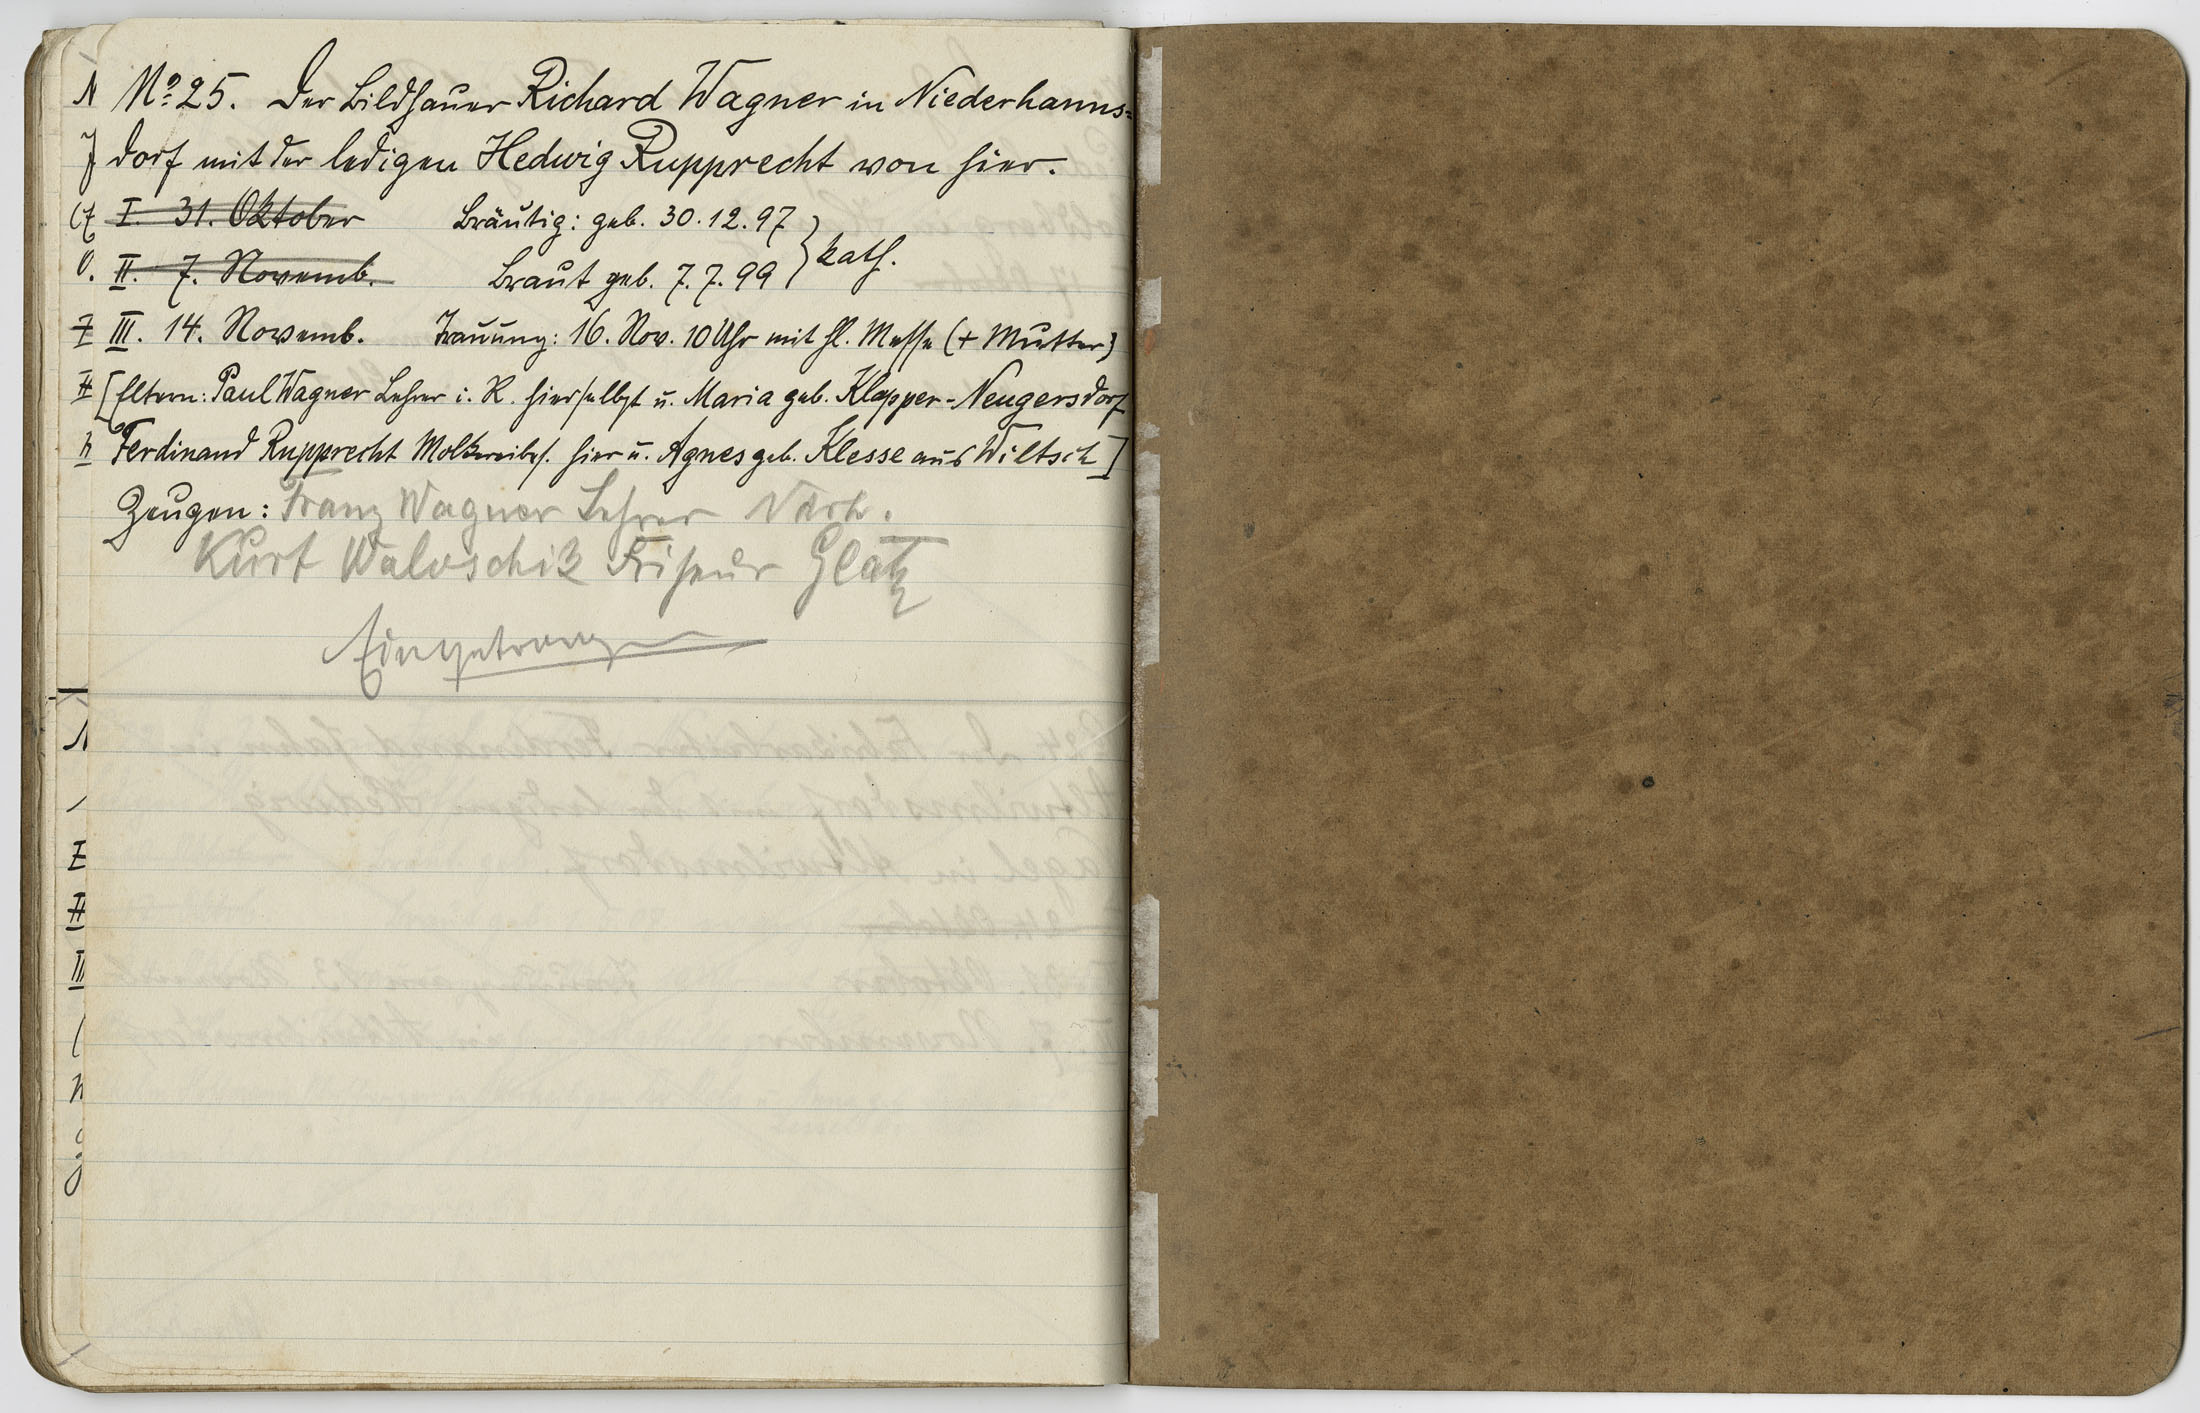 No 25. Der Bildhauer Richard Wagner in Niederhanns=
dorf mit der ledigen Hedwig Rupprecht von hier.
I. 31. Oktober Bräutig: geb. 30.12.97
II. 7. Novemb. Braut geb. 7.7.99 } kath.
III. 14. Novemb. Trauung: 16. Nov. 10 Uhr mit hl. Messe (+ Mutter)
[Eltern: Paul Wagner Lehrer i. R. hierselbst u. Maria geb. Klapper-Neugersdorf
Ferdinand Rupprecht Molkereibes. hier u. Agnes geb. Klesse aus Wiltsch]
Zeugen: Franz Wagner Lehrer
Kurt Waloschik Friseur Glatz
Eingetragen